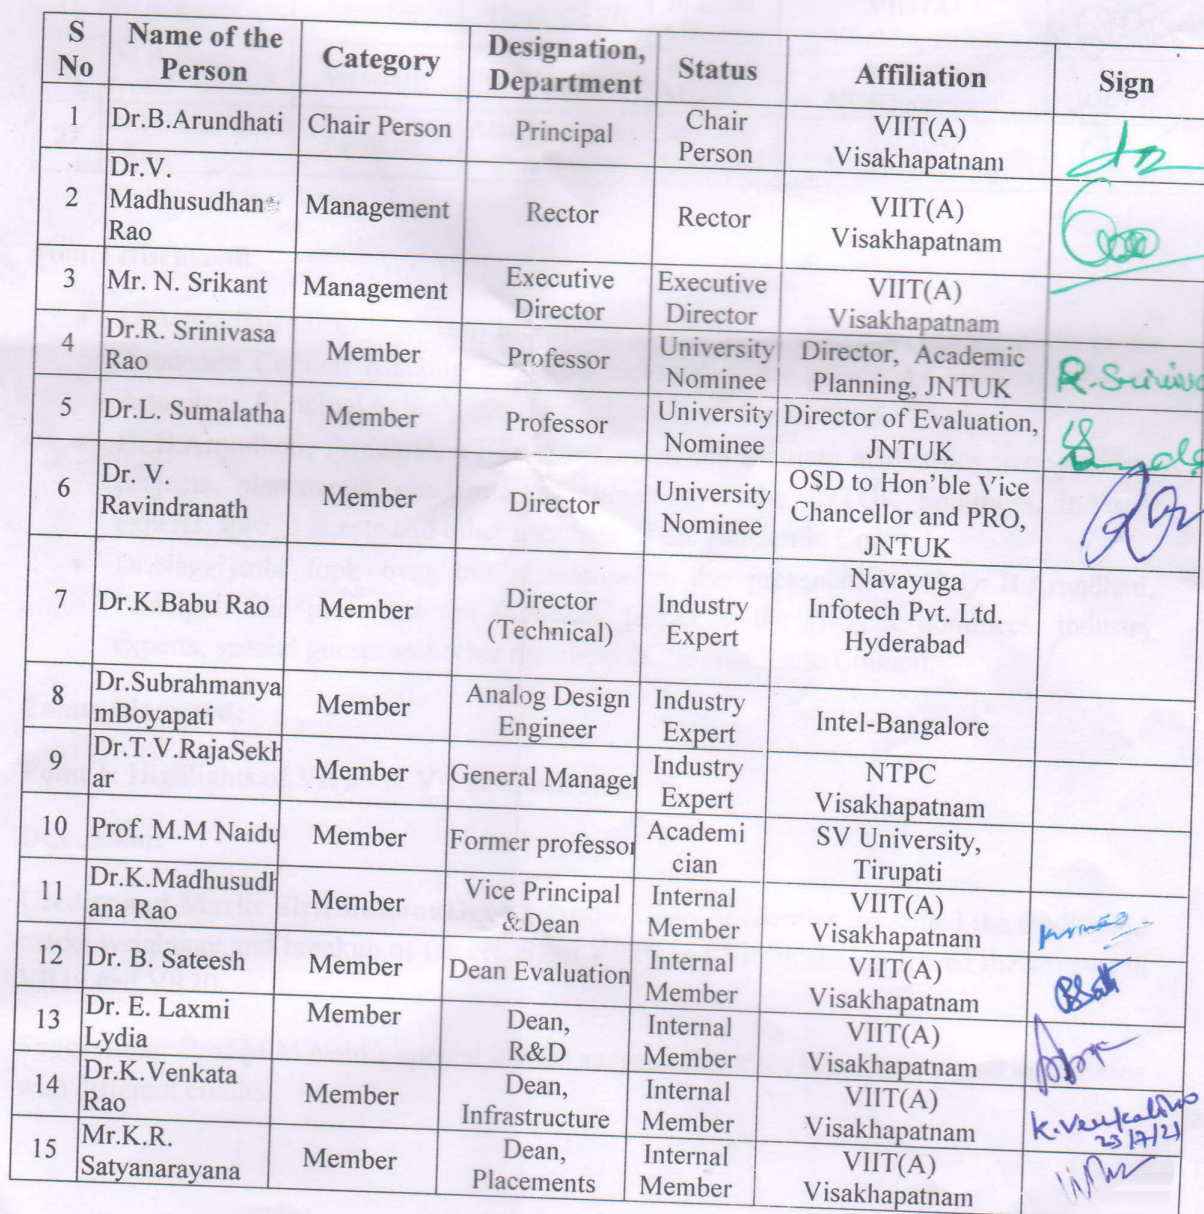 S No | Name of the Person | Category | Designation, Department | Status | Affiliation | Sign
1 | Dr.B.Arundhati | Chair Person | Principal | Chair Person | VIIT(A) Visakhapatnam
2 | Dr.V. Madhusudhan Rao | Management | Rector | Rector | VIIT(A) Visakhapatnam
3 | Mr. N. Srikant | Management | Executive Director | Executive Director | VIIT(A) Visakhapatnam
4 | Dr.R. Srinivasa Rao | Member | Professor | University Nominee | Director, Academic Planning, JNTUK
5 | Dr.L. Sumalatha | Member | Professor | University Nominee | Director of Evaluation, JNTUK
6 | Dr. V. Ravindranath | Member | Director | University Nominee | OSD to Hon'ble Vice Chancellor and PRO, JNTUK
7 | Dr.K.Babu Rao | Member | Director (Technical) | Industry Expert | Navayuga Infotech Pvt. Ltd. Hyderabad
8 | Dr.Subrahmanya mBoyapati | Member | Analog Design Engineer | Industry Expert | Intel-Bangalore
9 | Dr.T.V.RajaSekh ar | Member | General Manager | Industry Expert | NTPC Visakhapatnam
10 | Prof. M.M Naidu | Member | Former professor | Academi cian | SV University, Tirupati
11 | Dr.K.Madhusudh ana Rao | Member | Vice Principal &Dean | Internal Member | VIIT(A) Visakhapatnam
12 | Dr. B. Sateesh | Member | Dean Evaluation | Internal Member | VIIT(A) Visakhapatnam
13 | Dr. E. Laxmi Lydia | Member | Dean, R&D | Internal Member | VIIT(A) Visakhapatnam
14 | Dr.K.Venkata Rao | Member | Dean, Infrastructure | Internal Member | VIIT(A) Visakhapatnam | 23/7/21
15 | Mr.K.R. Satyanarayana | Member | Dean, Placements | Internal Member | VIIT(A) Visakhapatnam